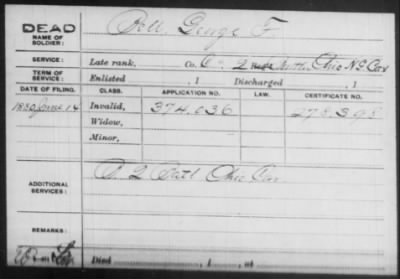 DEAD Bell, George F.
NAME OF SOLDIER:
SERVICE: Late rank, Co. C, 2 Ohio N.G. Cav
TERM OF SERVICE: Enlisted , 1 Discharged , 1
DATE OF FILING. CLASS. APPLICATION NO. LAW. CERTIFICATE NO.
1880 June 14 Invalid, 374,636 275,395
Widow,
Minor,
ADDITIONAL SERVICES: 2 Batl Ohio Cav
REMARKS:
Died , 1 , at